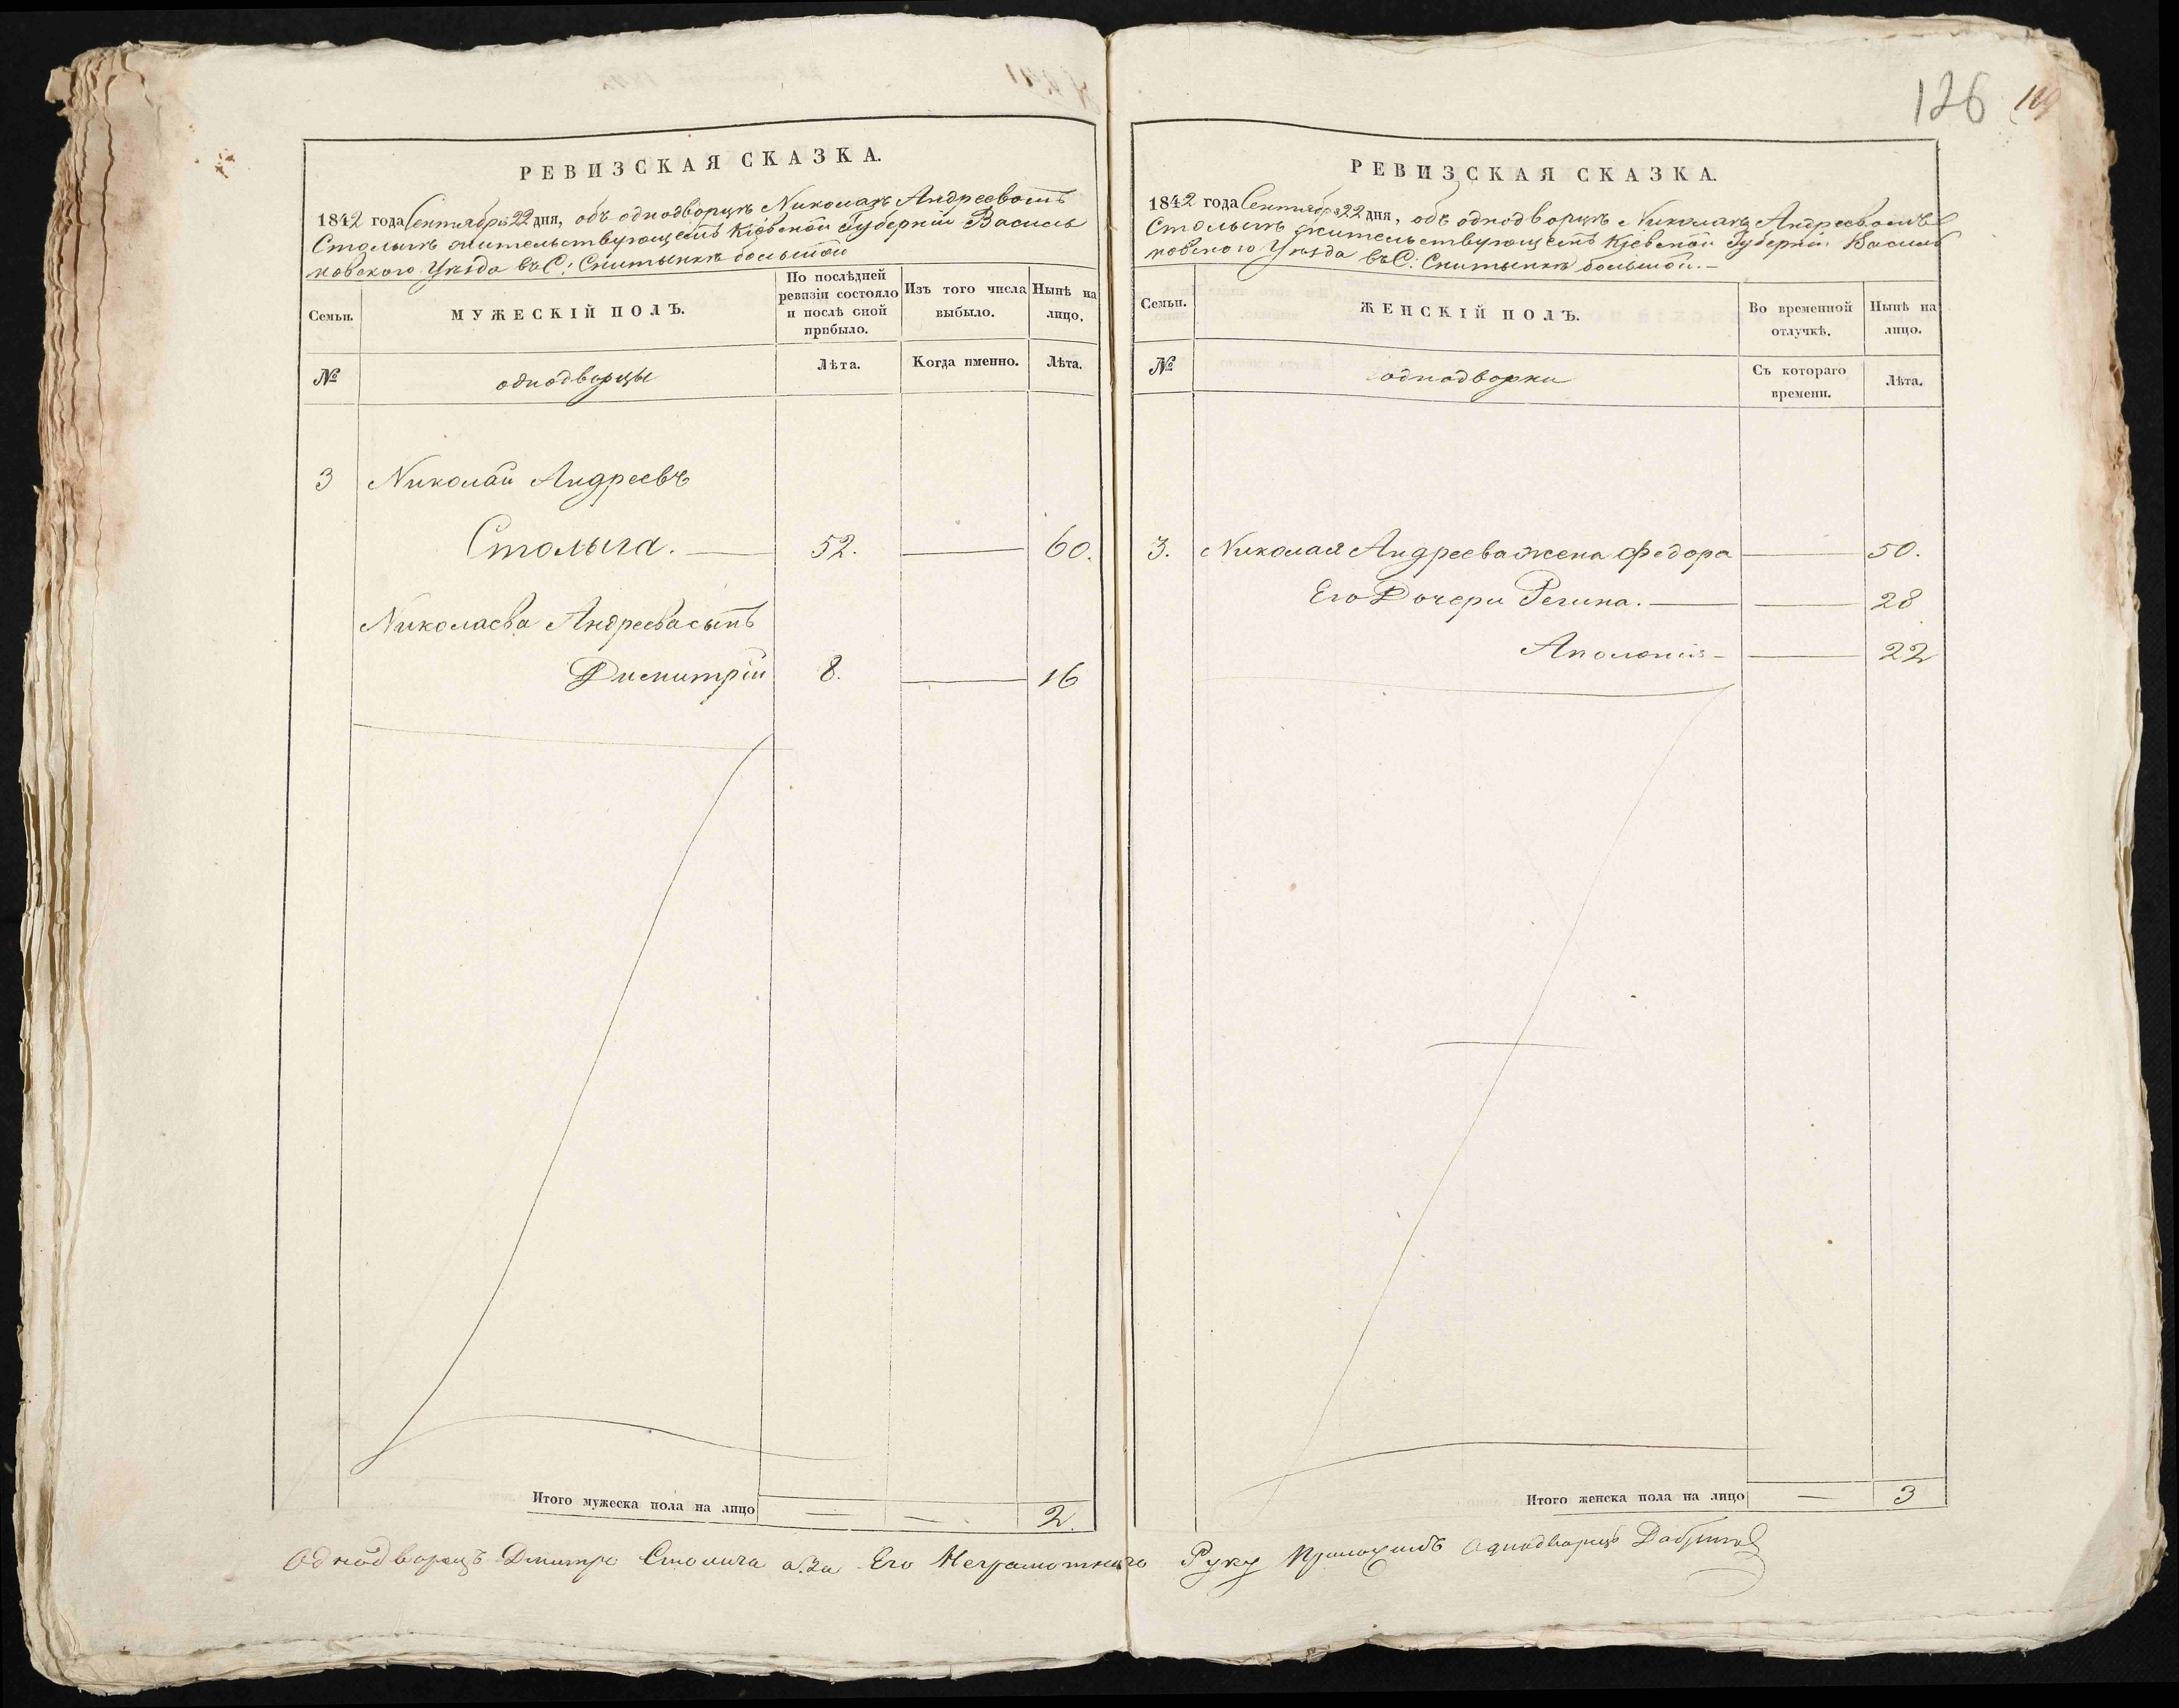 126 119
РЕВИЗСКАЯ СКАЗКА.
1842 года Сентября 22 дня, объ однодворцѣ Николаѣ Андреевомъ
Столыгѣ жительствующемъ Кіевской Губерніи Василь
ковского Уѣзда въ С: Снитынкѣ большой
Семьи.
МУЖЕСКІЙ ПОЛЪ.
По послѣдней ревизіи состояло и послѣ оной прибыло.
Изъ того числа выбыло.
Нынѣ на лицо.
№
однодворцы
Лѣта.
Когда именно.
Лѣта.
3 Николай Андреевъ
Столыга. — 52. — 60.
Николаева Андреева сынъ
Димитрій 8. — 16
Итого мужеска пола на лицо — — 2.
РЕВИЗСКАЯ СКАЗКА.
1842 года Сентября 22 дня, объ однодворцѣ Николаѣ Андреевомъ
Столыгѣ жительствующемъ Кіевской Губерніи Василь
ковского Уѣзда въ С: Снитынкѣ большой. —
Семьи.
ЖЕНСКІЙ ПОЛЪ.
Во временной отлучкѣ.
Нынѣ на лицо.
№
однодворки
Съ котораго времени.
Лѣта.
3. Николая Андреева жена Федора — 50.
Его Дочери Регина. — — 28
Аполонія — — 22
Итого женска пола на лицо — 3
Однодворецъ Дмитро а За Его Неграмотнаго Руку Приложилъ Однодворецъ